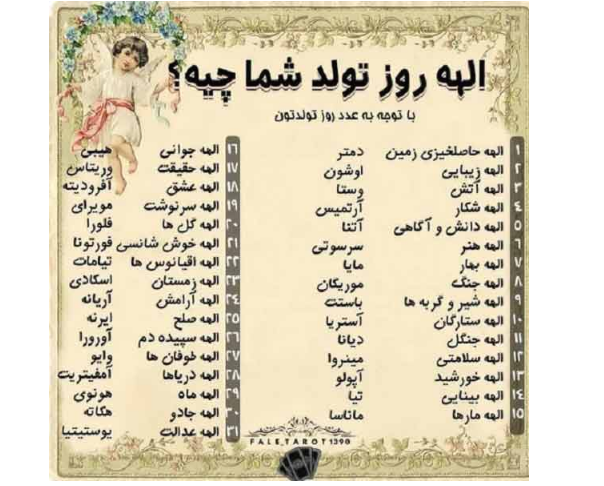 الهه روز تولد شما چیه؟
با توجه به عدد روز تولدتون
۱ الهه حاصلخیزی زمین دمتر
۲ الهه زیبایی اوشون
۳ الهه آتش وستا
۴ الهه شکار آرتمیس
۵ الهه دانش و آگاهی آتنا
۶ الهه هنر سرسوتی
۷ الهه بهار مایا
۸ الهه جنگ موریگان
۹ الهه شیر و گربه ها باستت
۱۰ الهه ستارگان آستریا
۱۱ الهه جنگل دیانا
۱۲ الهه سلامتی مینروا
۱۳ الهه خورشید آپولو
۱۴ الهه بینایی تیا
۱۵ الهه مارها ماناسا
۱۶ الهه جوانی هیبی
۱۷ الهه حقیقت وریتاس
۱۸ الهه عشق آفرودیته
۱۹ الهه سرنوشت مویرای
۲۰ الهه گل ها فلورا
۲۱ الهه خوش شانسی فورتونا
۲۲ الهه اقیانوس ها تیامات
۲۳ الهه زمستان اسکادی
۲۴ الهه آرامش آریانه
۲۵ الهه صلح ایرنه
۲۶ الهه سپیده دم آورورا
۲۷ الهه طوفان ها وایو
۲۸ الهه دریاها آمفیتریت
۲۹ الهه ماه هونوی
۳۰ الهه جادو هکاته
۳۱ الهه عدالت یوستیتیا
FALETAROT1390